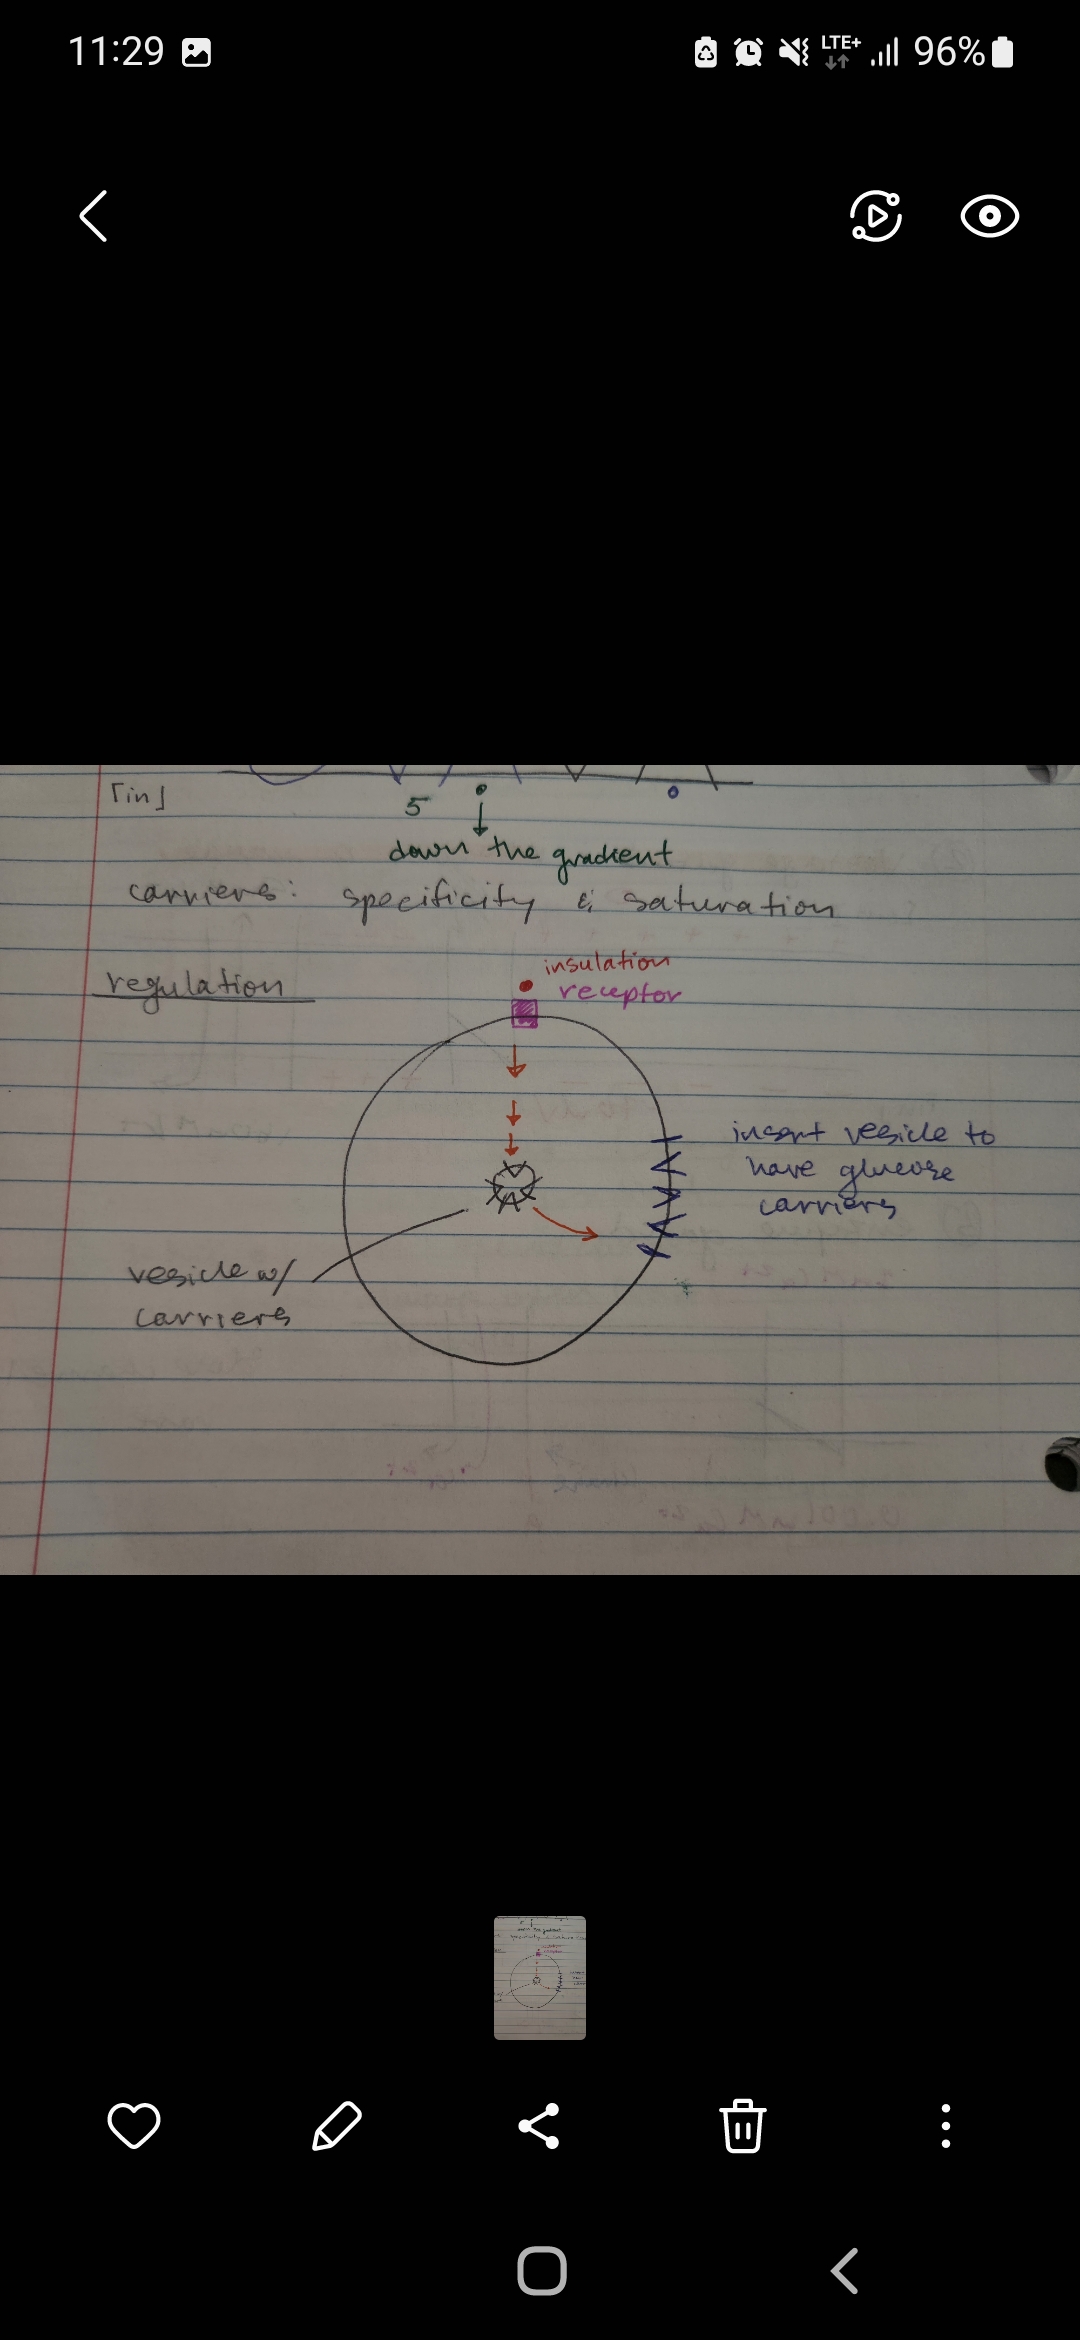 11:29
LTE+
96%
[in]
5
down the gradient
carriers: specificity & saturation
regulation
insulation
receptor
insert vesicle to
have glucose
carriers
vesicle w/
carriers